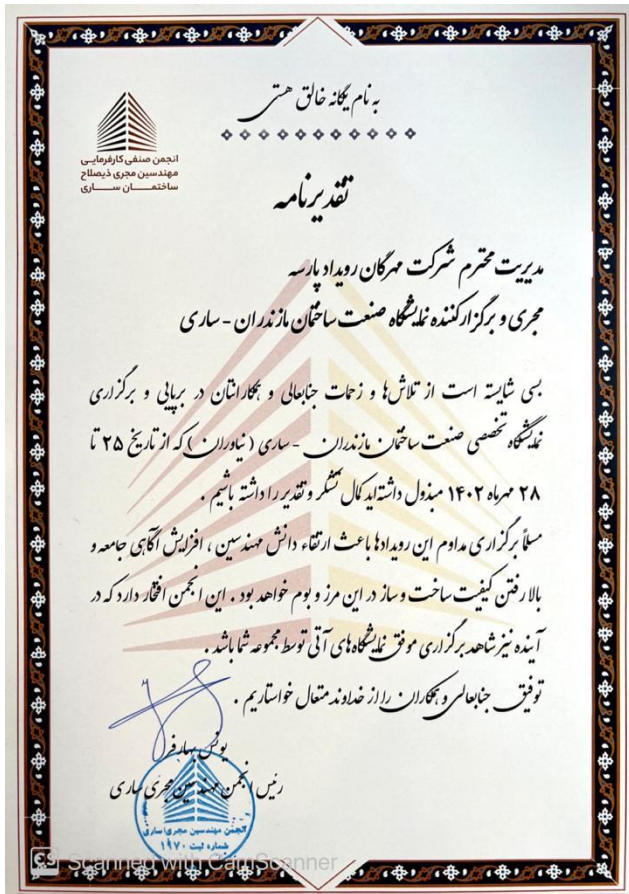 به نام یگانه خالق هستی
انجمن صنفی کارفرمایی
مهندسین مجری ذیصلاح
ساختمان ساری
تقدیرنامه
مدیریت محترم شرکت مهرگان رویداد پارسه
مجری و برگزار کننده نمایشگاه صنعت ساختمان مازندران - ساری
بسی شایسته است از تلاش‌ها و زحمات جنابعالی و همکارانتان در برپایی و برگزاری
نمایشگاه تخصصی صنعت ساختمان مازندران - ساری ( نیاوران ) که از تاریخ ۲۵ تا
۲۸ مهرماه ۱۴۰۲ مبذول داشته‌اید کمال تشکر و تقدیر را داشته باشیم .
مسلماً برگزاری مداوم این رویدادها باعث ارتقاء دانش مهندسین ، افزایش آگاهی جامعه و
بالا رفتن کیفیت ساخت و ساز در این مرز و بوم خواهد بود . این انجمن افتخار دارد که در
آینده نیز شاهد برگزاری موفق نمایشگاه‌های آتی توسط مجموعه شما باشد .
توفیق جنابعالی و همکاران را از خداوند متعال خواستاریم .
یونس بهارفر
رئیس انجمن مهندسین مجری ساری
انجمن مهندسین مجری ساری
شماره ثبت ۱۹۷۰
CS Scanned with CamScanner